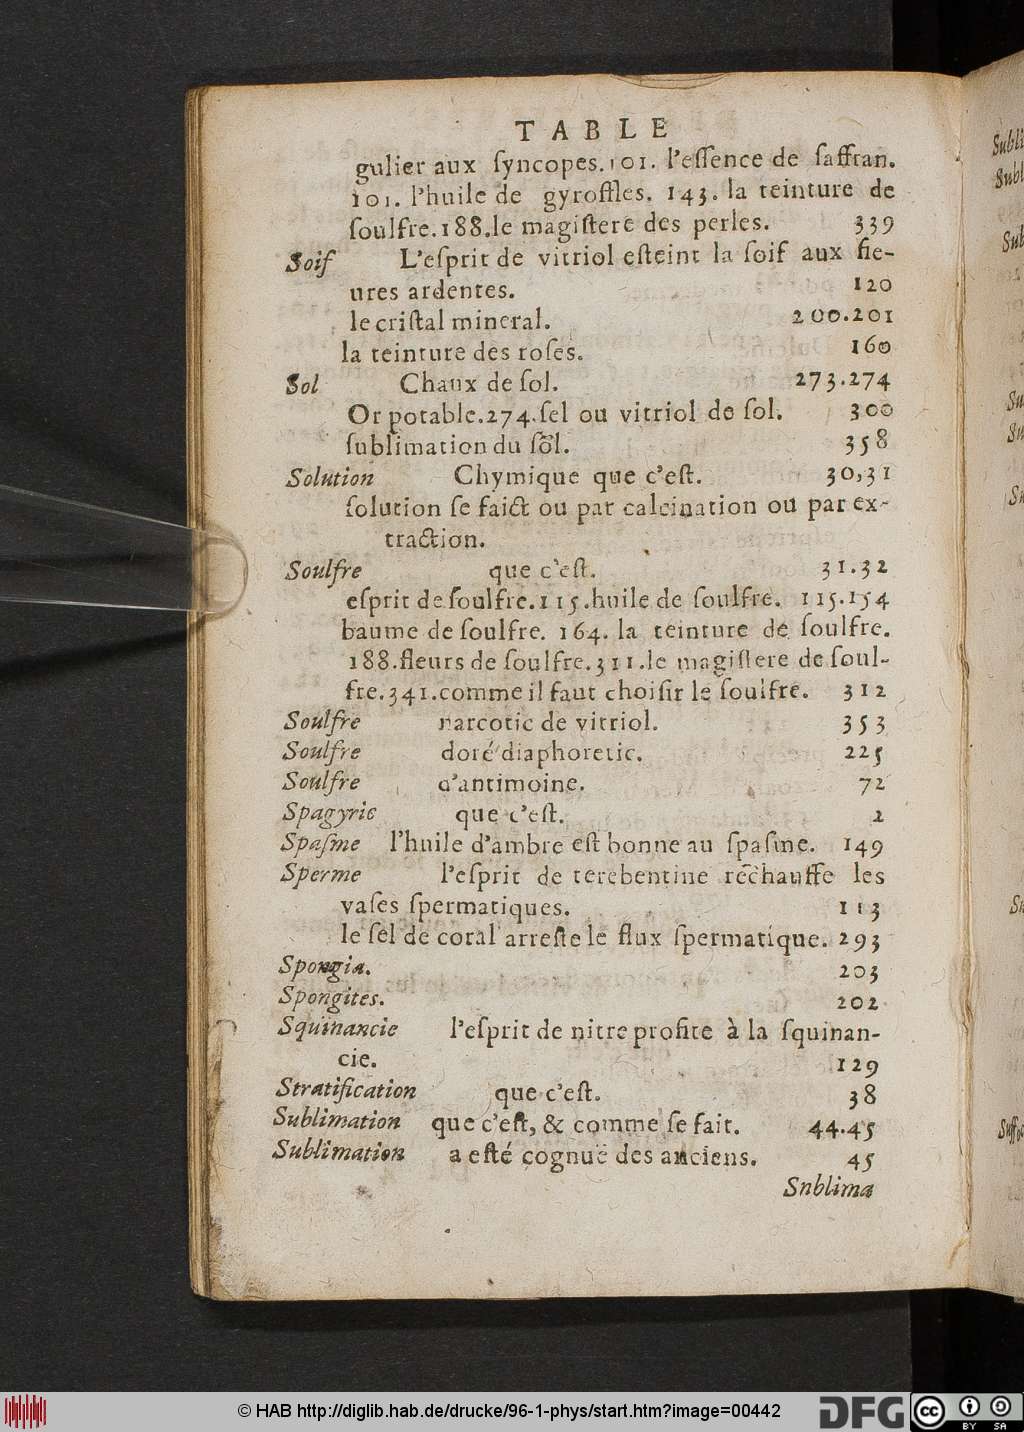 TABLE
gulier aux ſyncopes.101. l'eſſence de ſaffran.
101. l'huile de gyroffles. 143. la teinture de
ſoulfre.188.le magiſtere des perles. 339
Soif L'eſprit de vitriol eſteint la ſoif aux fie-
ures ardentes. 120
le criſtal mineral. 200.201
la teinture des roſes. 160
Sol Chaux de ſol. 273.274
Or potable.274.ſel ou vitriol de ſol. 300
ſublimation du ſol. 358
Solution Chymique que c'eſt. 30,31
ſolution ſe faict ou par calcination ou par ex-
traction.
Soulfre que c'eſt. 31.32
eſprit de ſoulfre.115.huile de ſoulfre. 115.154
baume de ſoulfre. 164. la teinture de ſoulfre.
188.fleurs de ſoulfre.311.le magiſtere de ſoul-
fre.341.comme il faut choiſir le ſoulfre. 312
Soulfre narcotic de vitriol. 353
Soulfre doré diaphoretic. 225
Soulfre d'antimoine. 72
Spagyric que c'eſt. 2
Spaſme l'huile d'ambre eſt bonne au ſpaſme. 149
Sperme l'eſprit de terebentine rechauffe les
vaſes ſpermatiques. 113
le ſel de coral arreſte le flux ſpermatique. 293
Spongia. 203
Spongites. 202
Squinancie l'eſprit de nitre profite à la ſquinan-
cie. 129
Stratification que c'eſt. 38
Sublimation que c'eſt, & comme ſe fait. 44.45
Sublimation a eſté cognuë des anciens. 45
Snblima
© HAB http://diglib.hab.de/drucke/96-1-phys/start.htm?image=00442
DFG
cc BY SA